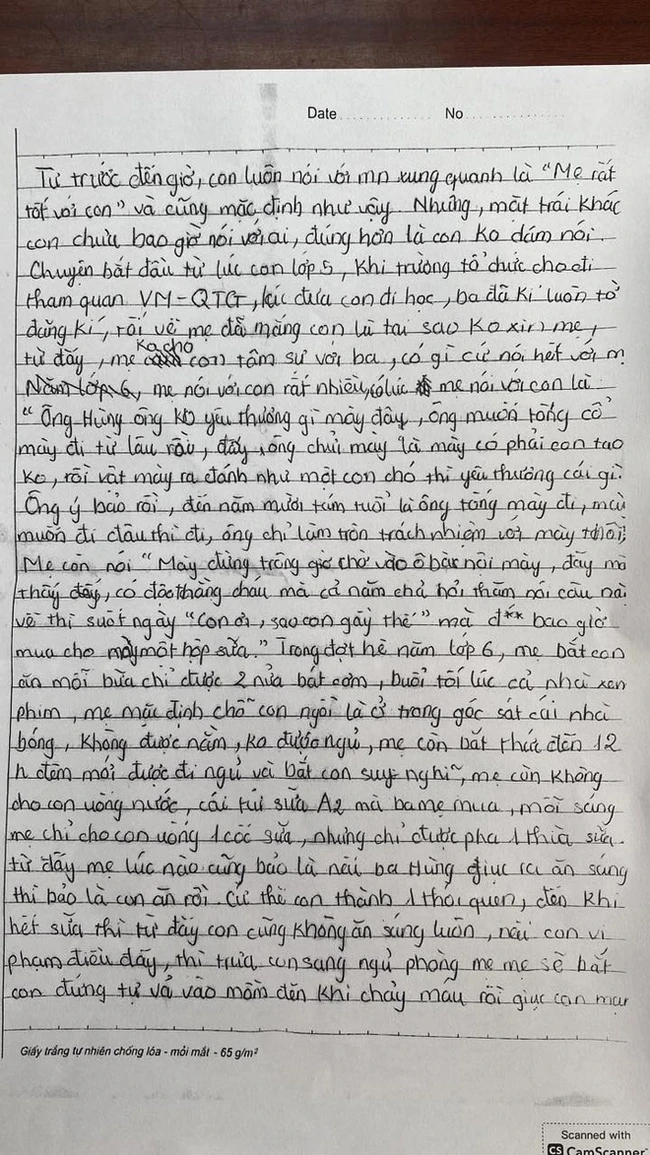 Date.............. No..............
Từ trước đến giờ, con luôn nói với mn xung quanh là "Mẹ rất
tốt với con" và cũng mặc định như vậy. Nhưng, mặt trái khác
con chưa bao giờ nói với ai, đúng hơn là con ko dám nói.
Chuyện bắt đầu từ lúc con lớp 5, khi trường tổ chức cho đi
tham quan VM-QTG, lúc đưa con đi học, ba đã kí luôn tờ
đăng kí, rồi về mẹ đã mắng con là tại sao ko xin mẹ,
từ đấy, mẹ ko cho con tâm sự với ba, có gì cứ nói hết với m
Năm lớp 6, mẹ nói với con rất nhiều, có lúc mẹ nói với con là
"Ông Hùng ông ko yêu thương gì mày đây, ông muốn tống cổ
mày đi từ lâu rồi, đấy, ông chửi mày là mày có phải con tao
ko, rồi vật mày ra đánh như một con chó thì yêu thương cái gì.
Ông ý bảo rồi, đến năm mười tám tuổi là ông tống mày đi, mài
muốn đi đâu thì đi, ông chỉ làm tròn trách nhiệm với mày thôi;
Mẹ còn nói "Mày đừng trông chờ vào ô bà nội mày, đấy mà
thấy đấy, có độc thằng cháu mà cả năm chả hỏi thăm nói câu nà
về thì suốt ngày "con ơi, sao con gầy thế" mà đ** bao giờ
mua cho mày một hộp sữa." Trong đợt hè năm lớp 6, mẹ bắt con
ăn mỗi bữa chỉ được 2 nửa bát cơm, buổi tối lúc cả nhà xem
phim, mẹ mặc định chỗ con ngồi là ở trong góc sát cái nhà
bóng, không được nằm, ko được ngủ, mẹ còn bắt thức đến 12
h đêm mới được đi ngủ và bắt con suy nghĩ, mẹ còn không
cho con uống nước, cái túi sữa A2 mà ba mẹ mua, mỗi sáng
mẹ chỉ cho con uống 1 cốc sữa, nhưng chỉ được pha 1 thìa sữa.
từ đấy mẹ lúc nào cũng bảo là nếu ba Hùng giục ra ăn sáng
thì bảo là con ăn rồi. Cứ thế con thành 1 thói quen, đến khi
hết sữa thì từ đấy con cũng không ăn sáng luôn, nếu con vi
phạm điều đấy, thì trưa con sang ngủ phòng mẹ mẹ sẽ bắt
con đứng tự vả vào mồm đến khi chảy máu rồi giục con mau
Giấy trắng tự nhiên chống lóa - mỏi mắt - 65 g/m²
Scanned with
CS CamScanner